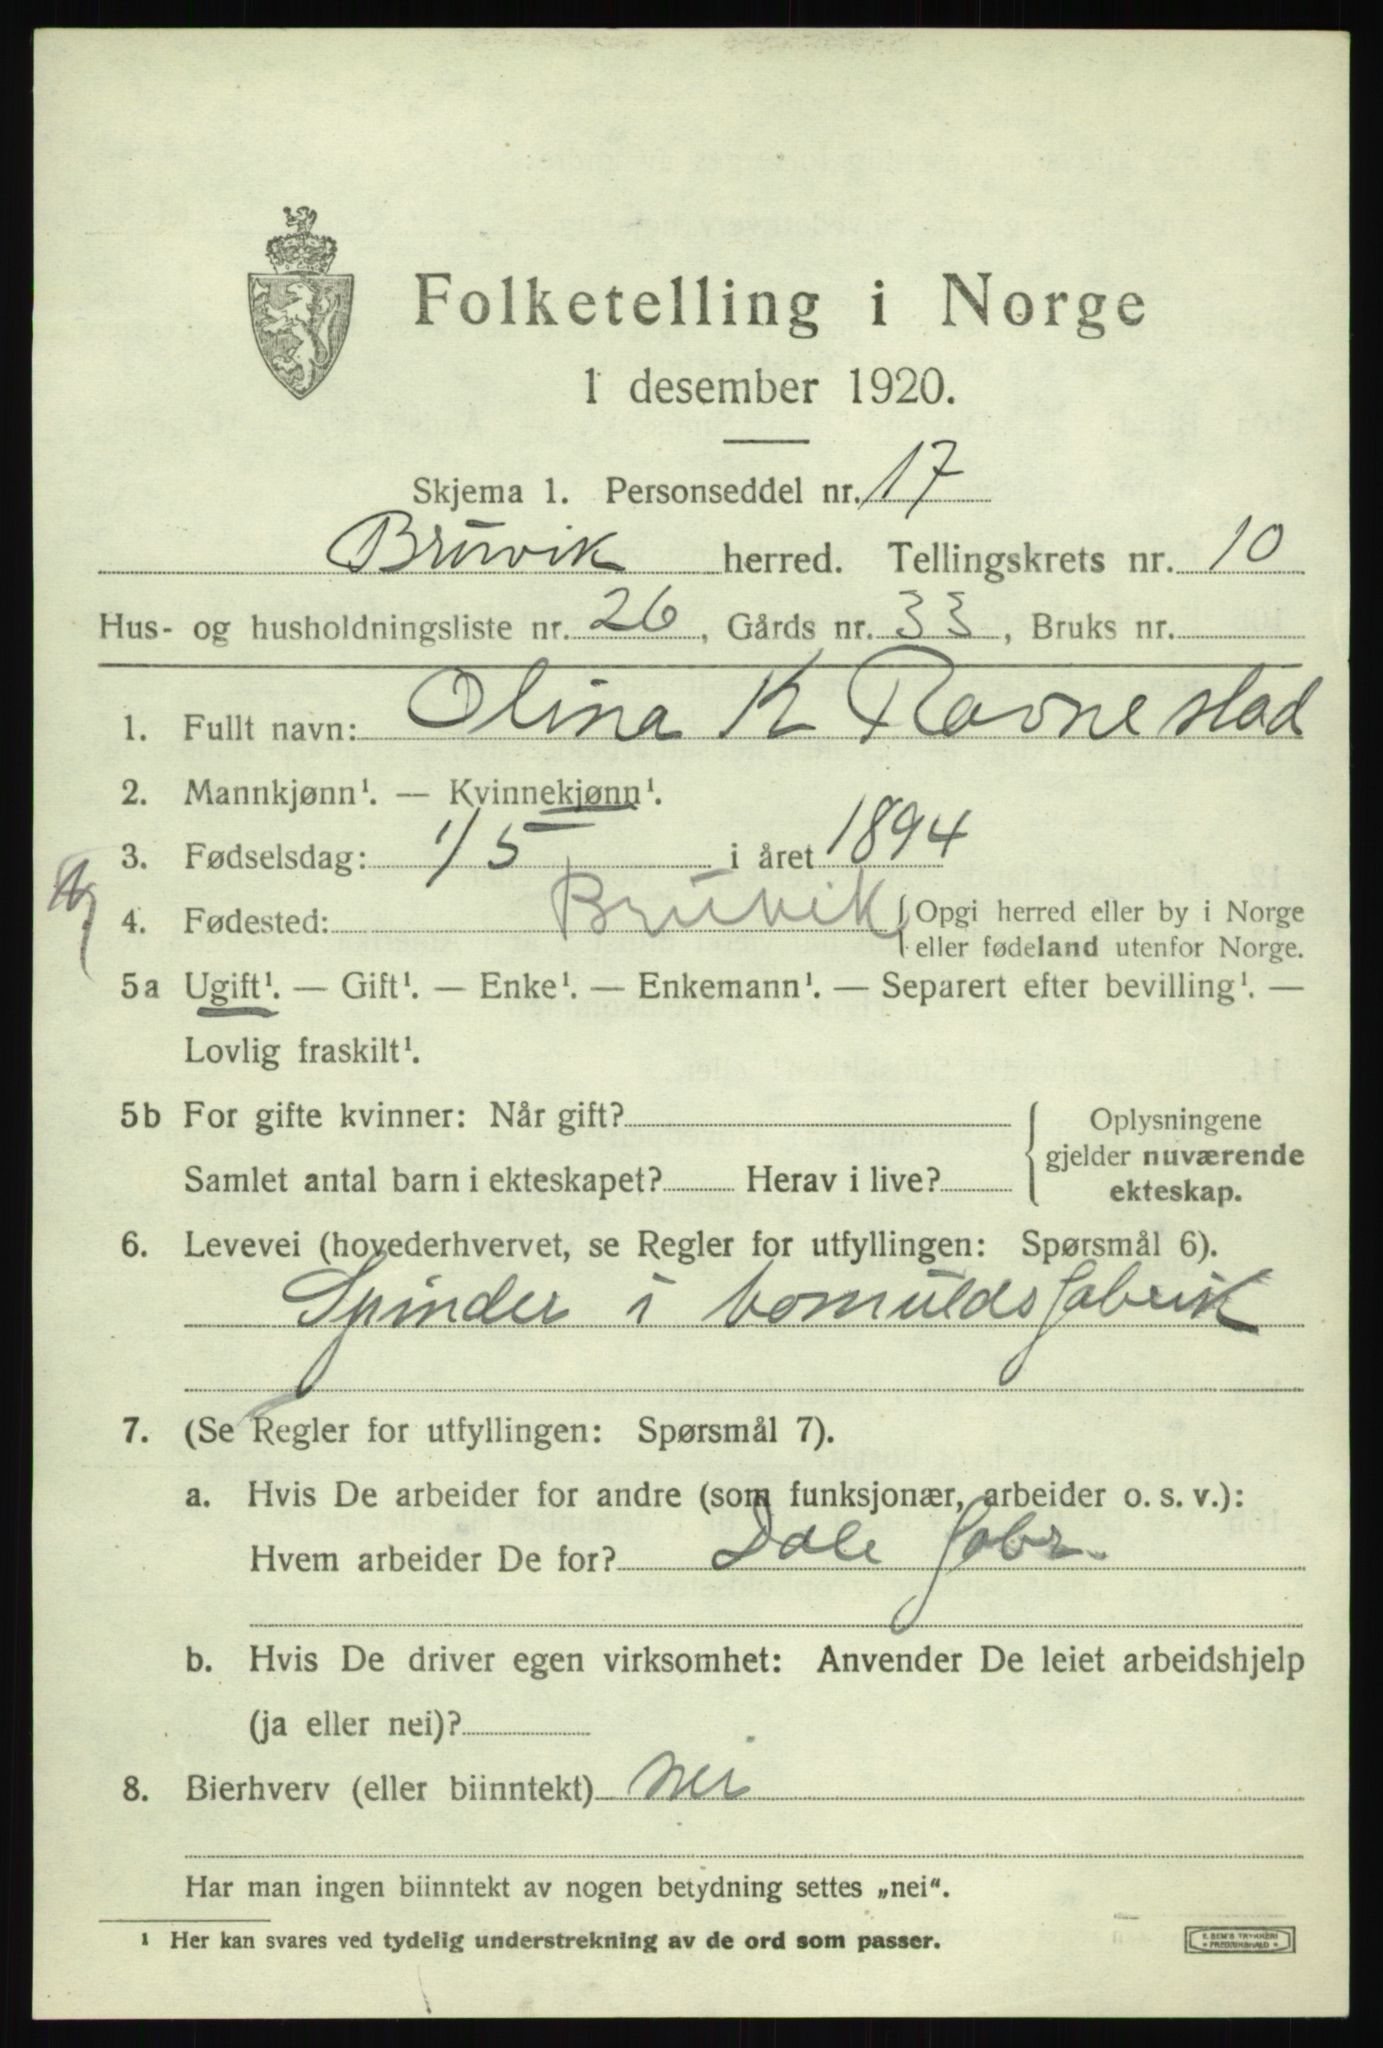 Folketelling i Norge
1 desember 1920.
Skjema 1. Personseddel nr. 17
Bruvik herred. Tellingskrets nr. 10
Hus- og husholdningsliste nr. 26, Gårds nr. 33, Bruks nr.
1. Fullt navn: Olina K Ravnestad
2. Mannkjønn¹. — Kvinnekjønn¹.
3. Fødselsdag: 1/5 i året 1894
4. Fødested: Bruvik {Opgi herred eller by i Norge
eller fødeland utenfor Norge.
5a Ugift¹. — Gift¹. — Enke¹. — Enkemann¹. — Separert efter bevilling¹. —
Lovlig fraskilt¹.
5b For gifte kvinner: Når gift? Oplysningene
gjelder nuværende
Samlet antal barn i ekteskapet? Herav i live?
ekteskap.
6. Levevei (hovederhvervet, se Regler for utfyllingen: Spørsmål 6).
Spinder i bomuldsfabrik
7. (Se Regler for utfyllingen: Spørsmål 7).
a. Hvis De arbeider for andre (som funksjonær, arbeider o. s. v.):
Hvem arbeider De for? Dale Fabr.
b. Hvis De driver egen virksomhet: Anvender De leiet arbeidshjelp
(ja eller nei)?
8. Bierhverv (eller biinntekt) nei
Har man ingen biinntekt av nogen betydning settes „nei“.
¹ Her kan svares ved tydelig understrekning av de ord som passer.
E. SEM'S TRYKKERI
* FREDRIKSHALD *